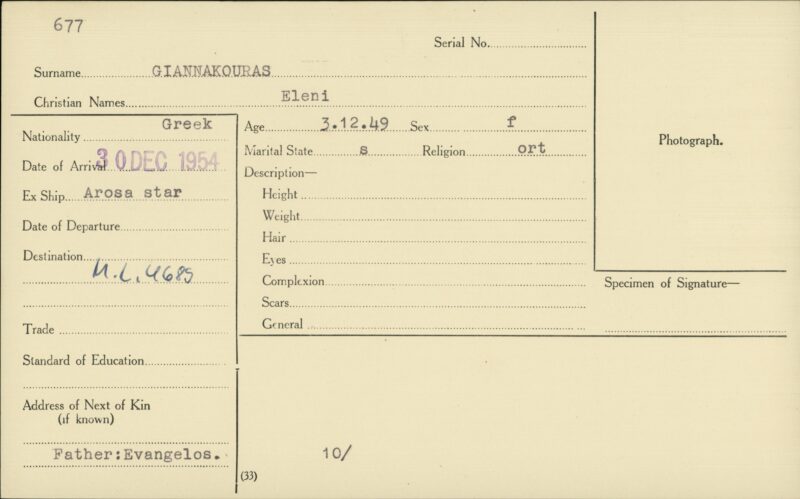 677
Serial No.
Surname GIANNAKOURAS
Christian Names Eleni
Nationality Greek
Date of Arrival 30 DEC 1954
Ex Ship Arosa star
Date of Departure
Destination
M.L. 4689
Trade
Standard of Education
Address of Next of Kin
(if known)
Father:Evangelos.
Age 3.12.49 Sex f
Marital State s Religion ort
Description—
Height
Weight
Hair
Eyes
Complexion
Scars
General
10/
(33)
Photograph.
Specimen of Signature—